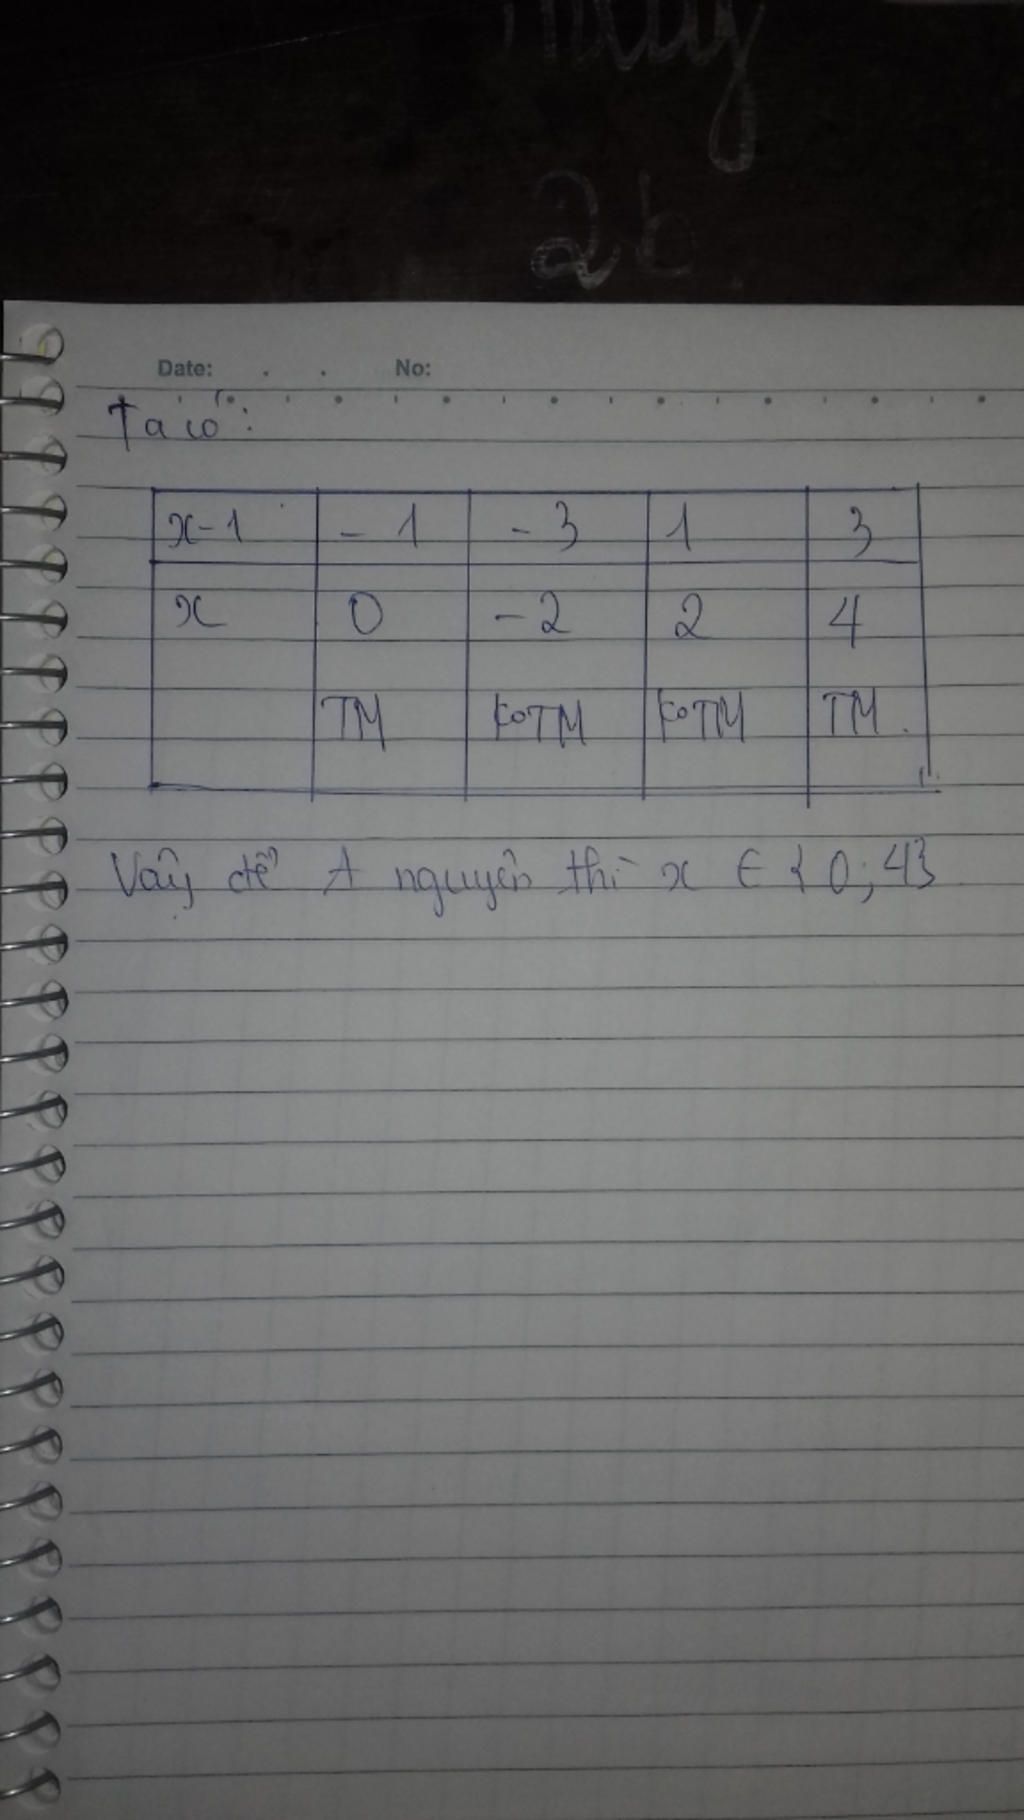 2b
Date: . . No:
Ta có:
x-1 -1 -3 1 3
x 0 -2 2 4
TM KoTM KoTM TM
Vậy để A nguyên thì x ∈ {0; 4}